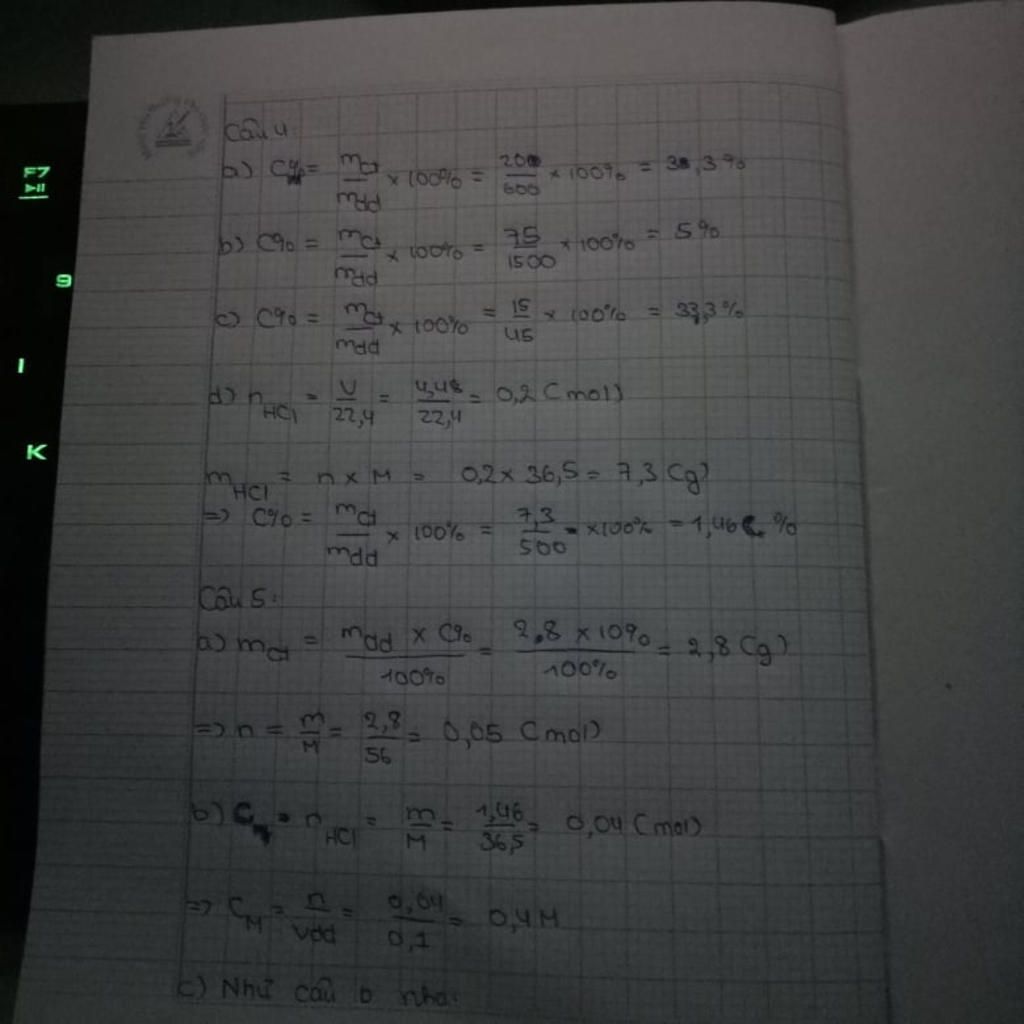 F7
9
I
K
Câu 4:
a) C% = mct/mdd × 100% = 200/600 × 100% = 33,3%
b) C% = mct/mdd × 100% = 75/1500 × 100% = 5%
c) C% = mct/mdd × 100% = 15/45 × 100% = 33,3%
d) nHCl = V/22,4 = 4,48/22,4 = 0,2 (mol)
mHCl = n × M = 0,2 × 36,5 = 7,3 (g)
=> C% = mct/mdd × 100% = 7,3/500 × 100% = 1,46 %
Câu 5:
a) mct = mdd × C%/100% = 2,8 × 10%/100% = 2,8 (g)
=> n = m/M = 2,8/56 = 0,05 (mol)
b) nHCl = m/M = 1,46/36,5 = 0,04 (mol)
=> CM = n/Vdd = 0,04/0,1 = 0,4M
c) Như câu b nha.